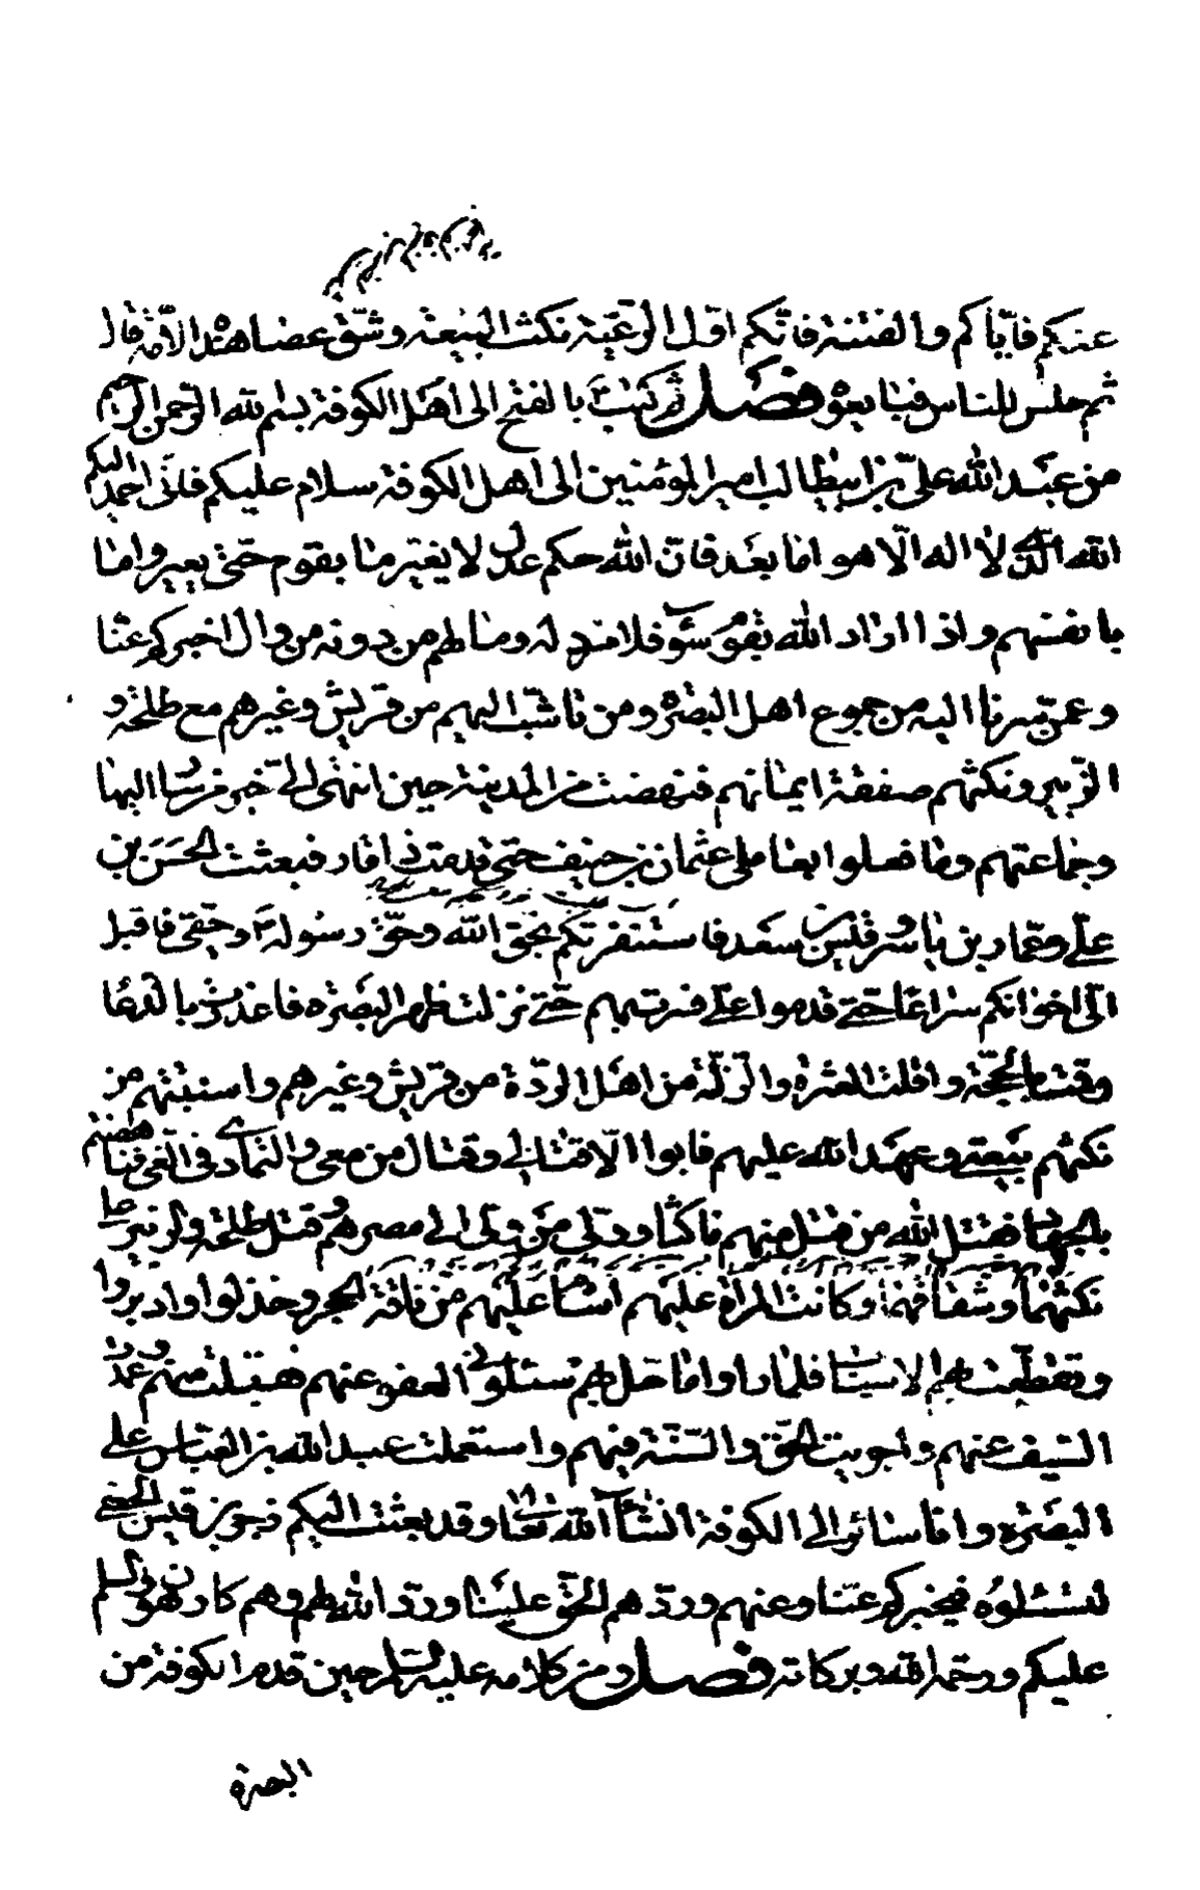 عنكم فاياكم والفتنة فانكم اول الرعية نكث البيعة وشق عصا هذه الامة قال
ثم جلس للناس فبايعوه فصل ثم كتب بالفتح الى اهل الكوفة بسم الله الرحمن الرحيم
من عبد الله علي بن ابيطالب امير المؤمنين الى اهل الكوفة سلام عليكم فاني احمد اليكم
الله الذي لا اله الا هو اما بعد فان الله حكم عدل لا يغير ما بقوم حتى يغيروا ما
بانفسهم واذا اراد الله بقوم سوء فلا مرد له وما لهم من دونه من وال اخبركم عنا
وعمن سرنا اليه من جموع اهل البصرة ومن تاشب اليهم من قريش وغيرهم مع طلحة و
الزبير ونكثهم صفقة ايمانهم فنهضت من المدينة حين انتهى الي خبر من سار اليها
وجماعتهم وما فعلوا بعاملي عثمان بن حنيف حتى قدمت ذا قار فبعثت الحسن بن
علي وعمار بن ياسر وقيس بن سعد فاستنفرتكم بحق الله وحق رسوله وحقي فاقبل
الي اخوانكم سراعا حتى قدموا علي فسرت بهم حتى نزلت ظهر البصرة فاعذرت بالدعا
وقمت بالحجة واقلت العثرة والزلة من اهل الردة من قريش وغيرهم واستبتهم من
نكثهم بيعتي وعهد الله عليهم فابوا الا قتالي وقتال من معي والتمادي في الغي فناهضتهم
بالجهاد فقتل الله من قتل منهم ناكثا وولى من ولى الى مصرهم وقتل طلحة والزبير على
نكثهما وشقاقهما وكانت المراة عليهم اشأم عليهم من ناقة الحجر وخذلوا وادبروا
وتقطعت بهم الاسباب فلما راوا ما حل بهم سئلوني العفو عنهم فقبلت منهم وغمدت
السيف عنهم واجريت الحق والسنة فيهم واستعملت عبد الله بن العباس على
البصرة وانا سائر الى الكوفة انشاء الله تعالى وقد بعثت اليكم زحر بن قيس الجعفي
لتسئلوه فيخبركم عنا وعنهم وردهم الحق علينا ورد الله لهم وهم كارهون والسلم
عليكم ورحمة الله وبركاته فصل ومن كلامه عليه السلام حين قدم الكوفة من
البصرة